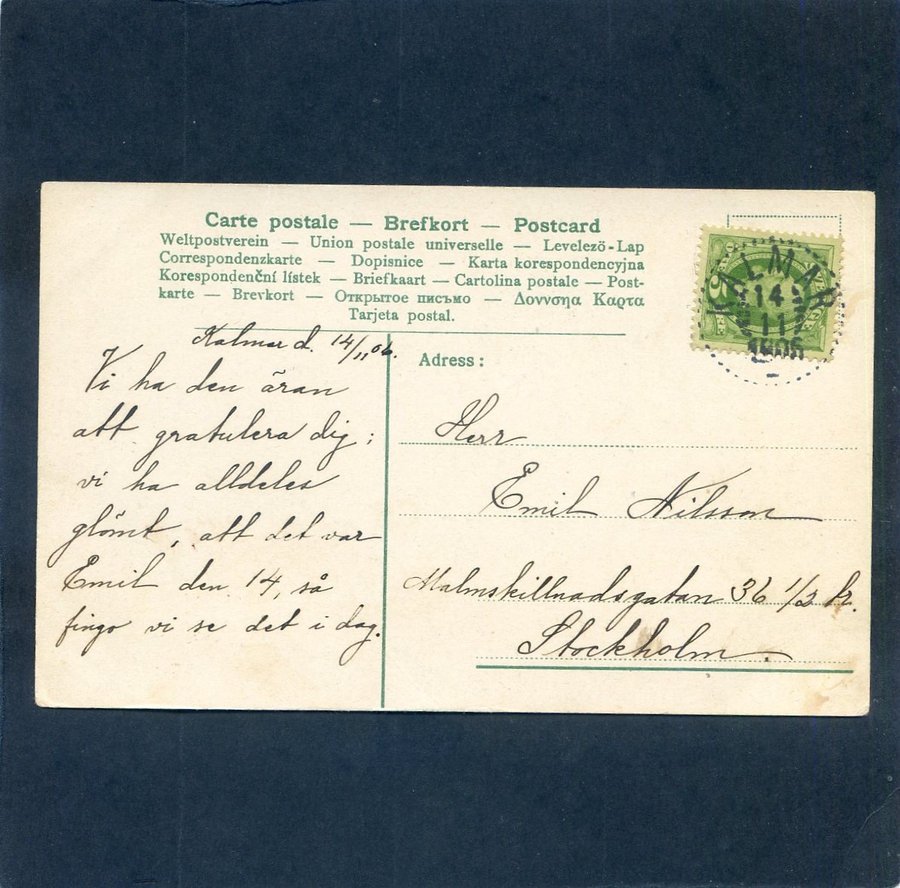 Carte postale — Brefkort — Postcard
Weltpostverein — Union postale universelle — Levelezö-Lap
Correspondenzkarte — Dopisnice — Karta korespondencyjna
Korespondenční lístek — Briefkaart — Cartolina postale — Post-
karte — Brevkort — Открытое письмо — Δοννσηα Καρτα
Tarjeta postal.
KALMAR
14
11
1906
Kalmar d. 14/11 06.
Vi ha den äran
att gratulera dig;
vi ha alldeles
glömt, att det var
Emil den 14, så
fingo vi se det i dag.
Adress:
Herr
Emil Nilsson
Malmskillnadsgatan 36 1/2 tr.
Stockholm.